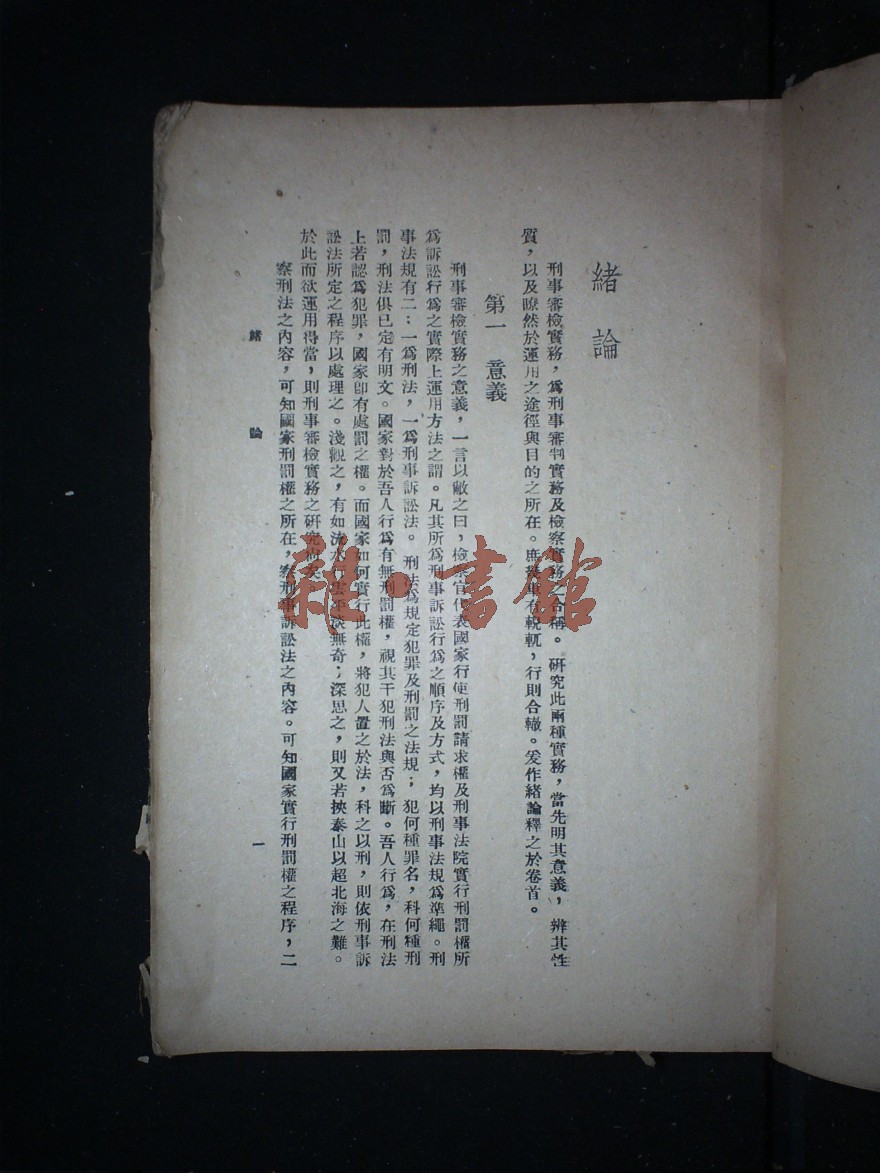 緒論
刑事審檢實務，爲刑事審判實務及檢察實務之合稱。研究此兩種實務，當先明其意義，辨其性
質，以及瞭然於運用之途徑與目的之所在。庶幾車有輗軏，行則合轍。爰作緒論釋之於卷首。
第一　意義
刑事審檢實務之意義，一言以蔽之曰，檢察官代表國家行使刑罰請求權及刑事法院實行刑罰權所
爲訴訟行爲之實際上運用方法之謂。凡其所爲刑事訴訟行爲之順序及方式，均以刑事法規爲準繩。刑
事法規有二：一爲刑法，一爲刑事訴訟法。刑法爲規定犯罪及刑罰之法規；犯何種罪名，科何種刑
罰，刑法俱已定有明文。國家對於吾人行爲有無刑罰權，視其干犯刑法與否爲斷。吾人行爲，在刑法
上若認爲犯罪，國家卽有處罰之權。而國家如何實行此權，將犯人置之於法，科之以刑，則依刑事訴
訟法所定之程序以處理之。淺觀之，有如流水行雲平淡無奇；深思之，則又若挾泰山以超北海之難。
於此而欲運用得當，則刑事審檢實務之研究尚矣
察刑法之內容，可知國家刑罰權之所在，察刑事訴訟法之內容。可知國家實行刑罰權之程序，二
緒論
一
雜·書館